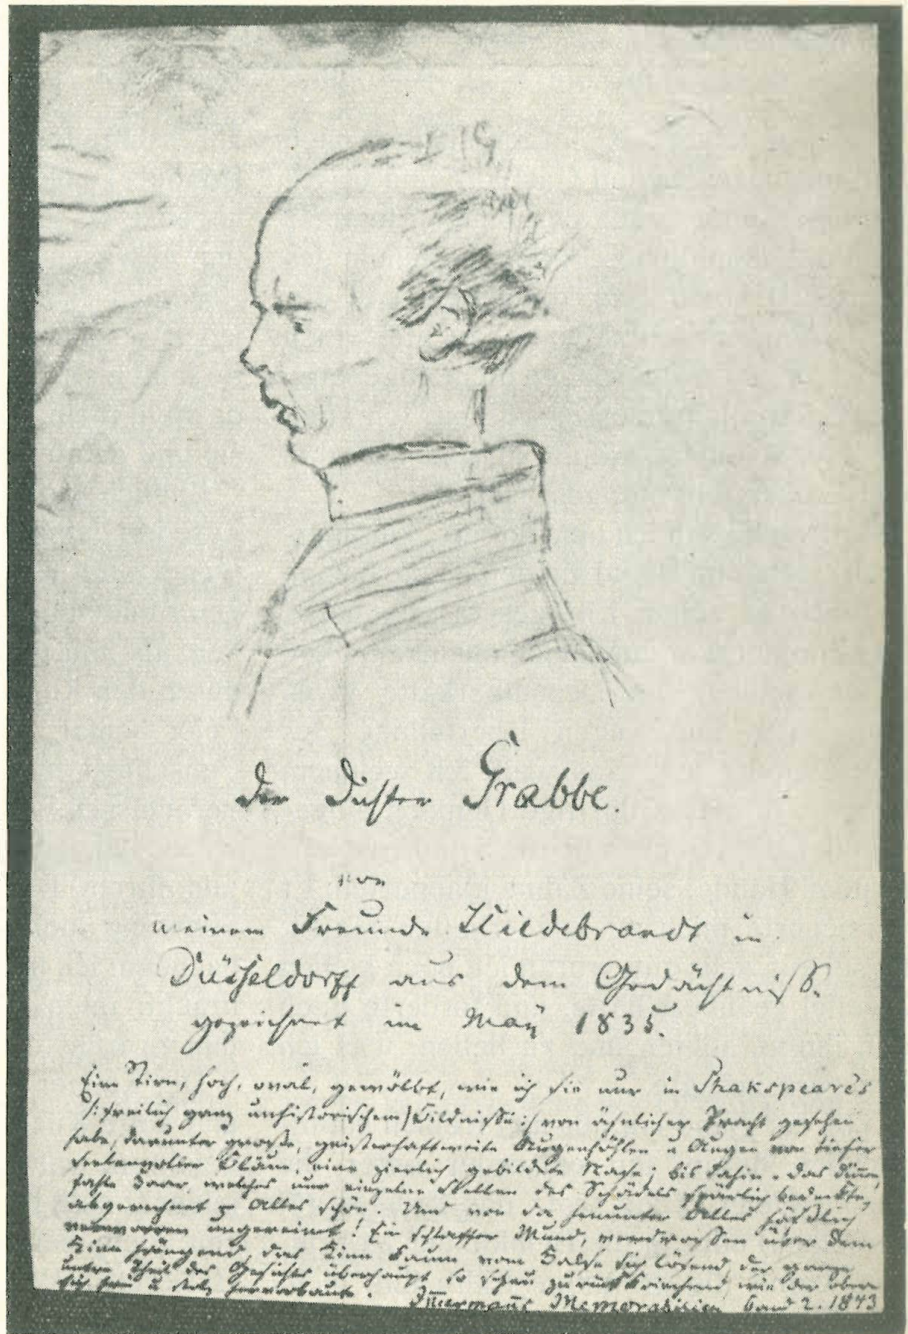 Der Dichter Grabbe.
von
meinem Freunde Hildebrandt in
Düsseldorff aus dem Gedächtniss.
gezeichnet im May 1835.
Eine Stirn, hoch, oval, gewölbt, wie ich sie nur in Shakspeare's
/:freilich ganz unhistorischem/ Bildnisse:/ von ähnlicher Pracht gesehen
habe, darunter große, geisterhaftweite Augenhöhlen u Augen von tiefer
seelenvoller Bläue, eine zierlich gebildete Nase; bis dahin - das dünne
fahle Haar, welches nur einzelne Stellen des Schädels spärlich bedeckte,
abgerechnet - Alles schön. Und von da hinunter Alles häßlich,
verworren ungereimt! Ein schlaffer Mund, verdrossen über dem
Kinn hängend, das Kinn kaum vom Halse sich lösend, der ganze
untere Theil des Gesichts überhaupt so scheu zurückkriechend, wie der obere
sich frei u stolz hervorbaute.
Immermanns Memorabilien Band 2. 1843